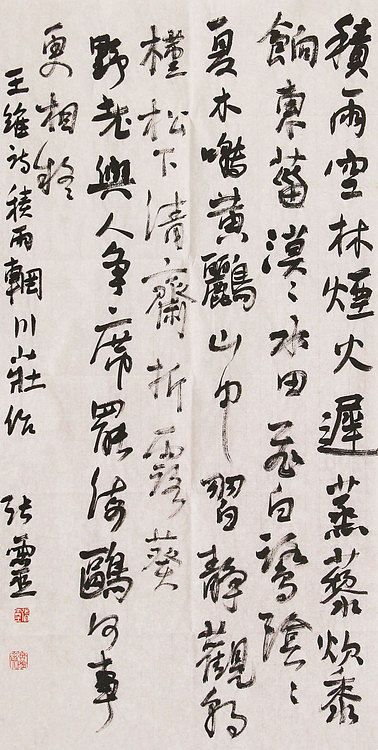 積雨空林煙火遲蒸藜炊黍
餉東菑漠〻水田飛白鷺陰〻
夏木囀黃鸝山中習靜觀朝
槿松下清齋折露葵
野老與人爭席罷海鷗何事
更相疑
王維詩積雨輞川莊作 张靈